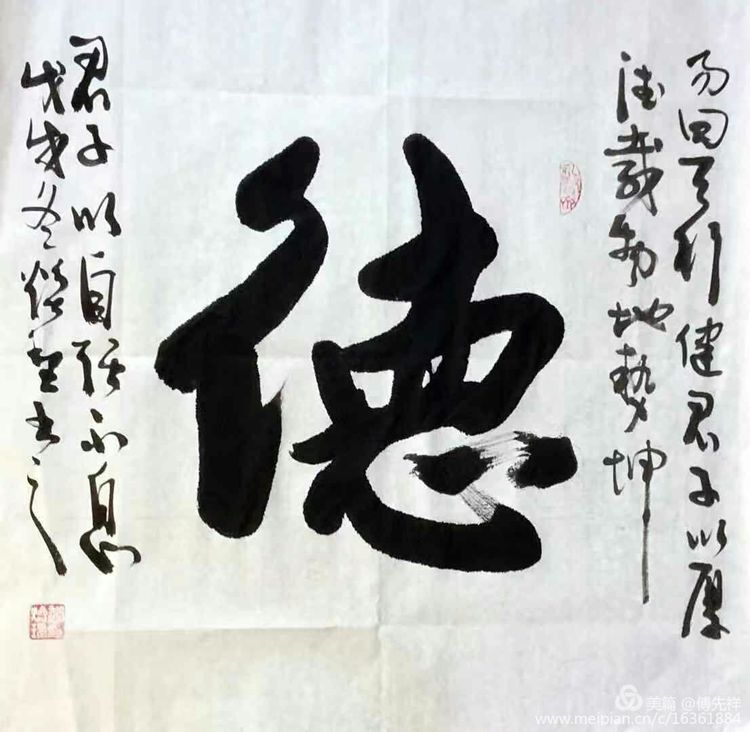 易曰天行健君子以厚
德載物地勢坤
德
君子以自强不息
戊戌冬书之
美篇 @傅先祥
www.meipian.cn/c/16361884